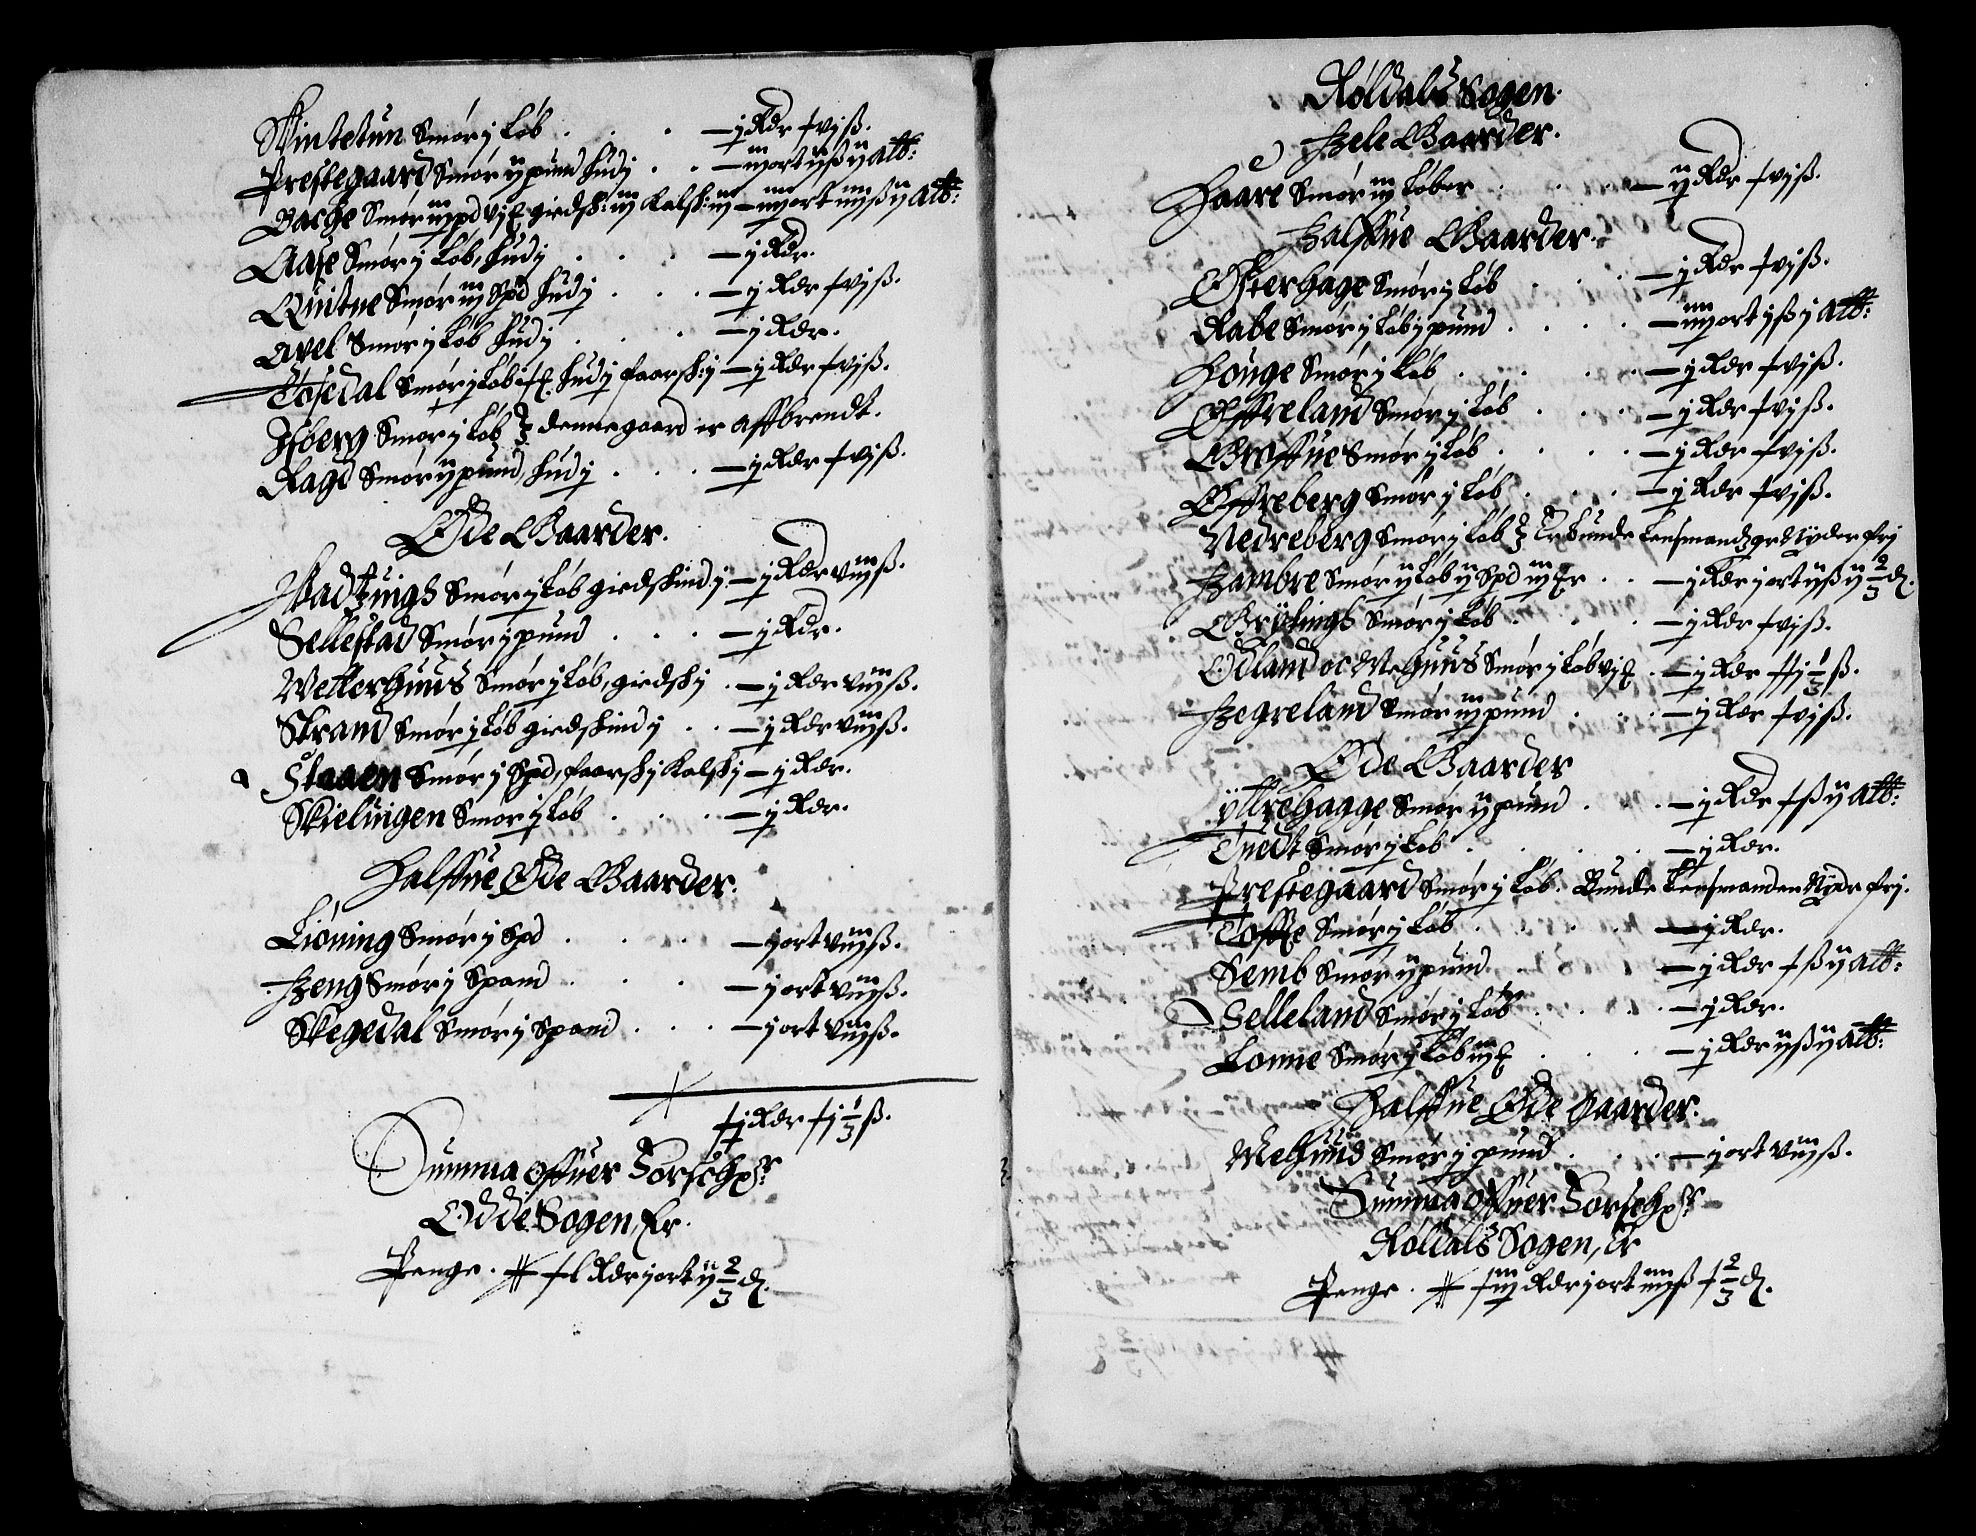 Skintetun Smør j Løb . . . — j Rdr xvj ß.
Prestegaard Smør ij pund hud j . . — iij ort ij ß ij alb:
Bache Smør iij pd vj £ giedsk: iij Kalsk: iij — iiij ort iiij ß ij alb:
Aase Smør j Løb, hud j . . . — j Rdr.
Quitne Smør iij Spd hud j . . . — j Rdr xvj ß.
Avel Smør j Løb hud j . . . — j Rdr.
Tosedal Smør j Løb hud j faarsk: j — j Rdr xvj ß.
Isberg Smør j Løb denne gaard er affbrendt.
Ragd Smør ij pund, hud j . . . — j Rdr xvj ß.
Øde Gaarder.
Smør j Løb giedskind j — j Rdr viij ß.
Sellestad Smør j pund . . . — j Rdr.
Wetterhuus Smør j Løb, giedsk j . — j Rdr viij ß.
Strand Smør j Løb giedskind j . . — j Rdr viij ß.
Staaen Smør j Spd, faarsk j Kalsk j — j Rdr.
Skielingen Smør j Løb . . . — j Rdr.
Halffue Øde Gaarder.
Lióning Smør j Spd . . . — j ort viij ß.
Heng Smør j Spand . . . — j ort viij ß.
Skegedal Smør j Spand . . . — j ort viij ß.
xj Rdr xj 1/3 ß.
Summa offuer
Odde Sogen, Er.
Penge. xl Rdr j ort ij 2/3 d.
Røldals Sogen.
Hele Gaarder.
Haare Smør iij Løber . . . — ij Rdr xvj ß.
Halffue Gaarder.
Østerhage Smør j Løb . . . — j Rdr xvj ß.
Rabe Smør j Løb j pund . . . — iiij ort j ß j alb:
Houge Smør j Løb . . . — j Rdr xvj ß.
Øffreland Smør j Løb . . . — j Rdr xvj ß.
Greffue Smør j Løb . . . — j Rdr xvj ß.
Øffreberg Smør j Løb . . . — j Rdr xvj ß.
Nedreberg Smør j Løb Er bunde Lensmandz gr Nyder frj
Hambre Smør ij Løb ij Spd iij £r . . — j Rdr j ort ij ß ij 2/3 d.
Smør j Løb . . . — j Rdr xvj ß.
Ødland oc Nehuus Smør j Løb vj £ . — j Rdr xxj 1/3 ß.
Hegreland Smør iij pund . . . — j Rdr xvj ß.
Øde Gaarder
Yttrehagge Smør ij pund . . . — j Rdr x ß ij alb:
Tuedt Smør j Løb . . . — j Rdr.
Prestegaard Smør j Løb. Bunde Lensmanden Nydr frj.
Toffte Smør j Løb . . . — j Rdr.
Semb Smør ij pund . . . — j Rdr x ß ij alb:
Selleland Smør j Løb . . . — j Rdr.
Lonne Smør j Løb iij £ . . . — j Rdr ij ß ij alb:
Halffue Øde Gaarder.
Mehuus Smør j pund . . . — j ort viij ß.
Summa offuer
Røldals Sogen, Er
Penge. xiij Rdr j ort iiij ß x 2/3 d.